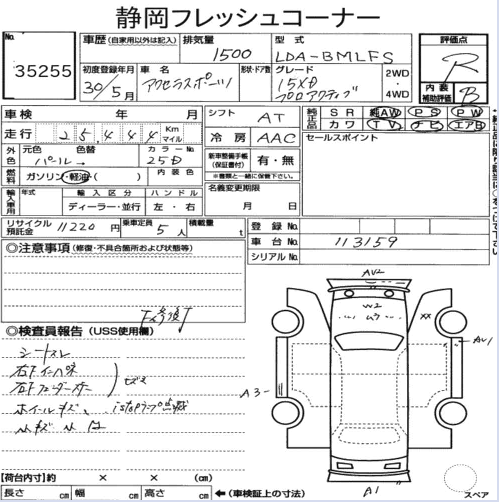 静岡フレッシュコーナー
No.
35255
車歴 (自家用以外は記入)
排気量
1500
型式
LDA-BMLFS
評価点
R
初度登録年月
30/5月
車名
アクセラスポーツ
形状・ドア数
グレード
15XD
プロアクティブ
2WD
・
4WD
内装
補助評価
B
車検 年 月
シフト
AT
純正品
SR 純AW PS PW
カワ TV ナビ エアB
走行 25,444 Km マイル
冷房
AAC
セールスポイント
外色
元色
パール
色替
→
カラーNo.
25D
新車整備手帳
(保証書付)
有・無
※書類と一緒に保管下さい。
燃料
ガソリン・軽油・( )
内装色
輸入車用
年式
輸入区分
ディーラー・並行
ハンドル
左・右
名義変更期限
月 日
リサイクル預託金
11220円
乗車定員
5人
積載量
t
登録No.
車台No.
113159
シリアルNo.
◎注意事項 (修復・不具合箇所および状態等)
◎検査員報告 (USS使用欄)
シートスレ
キズ
ホイールキズ、istopランプ点滅
AU2
W2
XX
AU1
A3
A1
スペア
【荷台内寸】約 × × (cm)
長さ cm 幅 cm 高さ cm ←(車検証上の寸法)